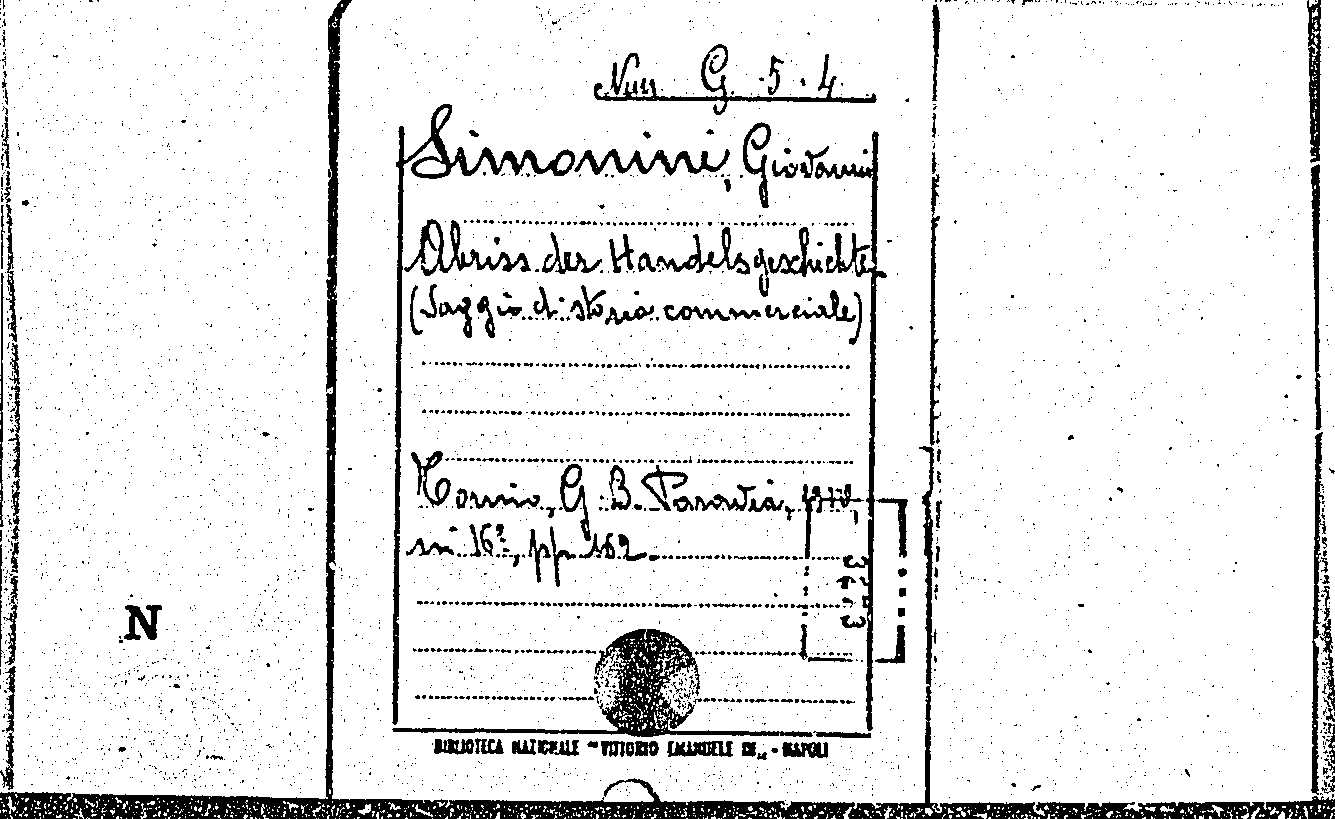 Nun G. 5. 4
Simonini, Giovanni
Abriss der Handelsgeschichte
(Saggio di storia commerciale)
Torino, G. B. Paravia,
in 16º, pp. 162.
N
BIBLIOTECA NAZIONALE - VITTORIO EMANUELE III - NAPOLI